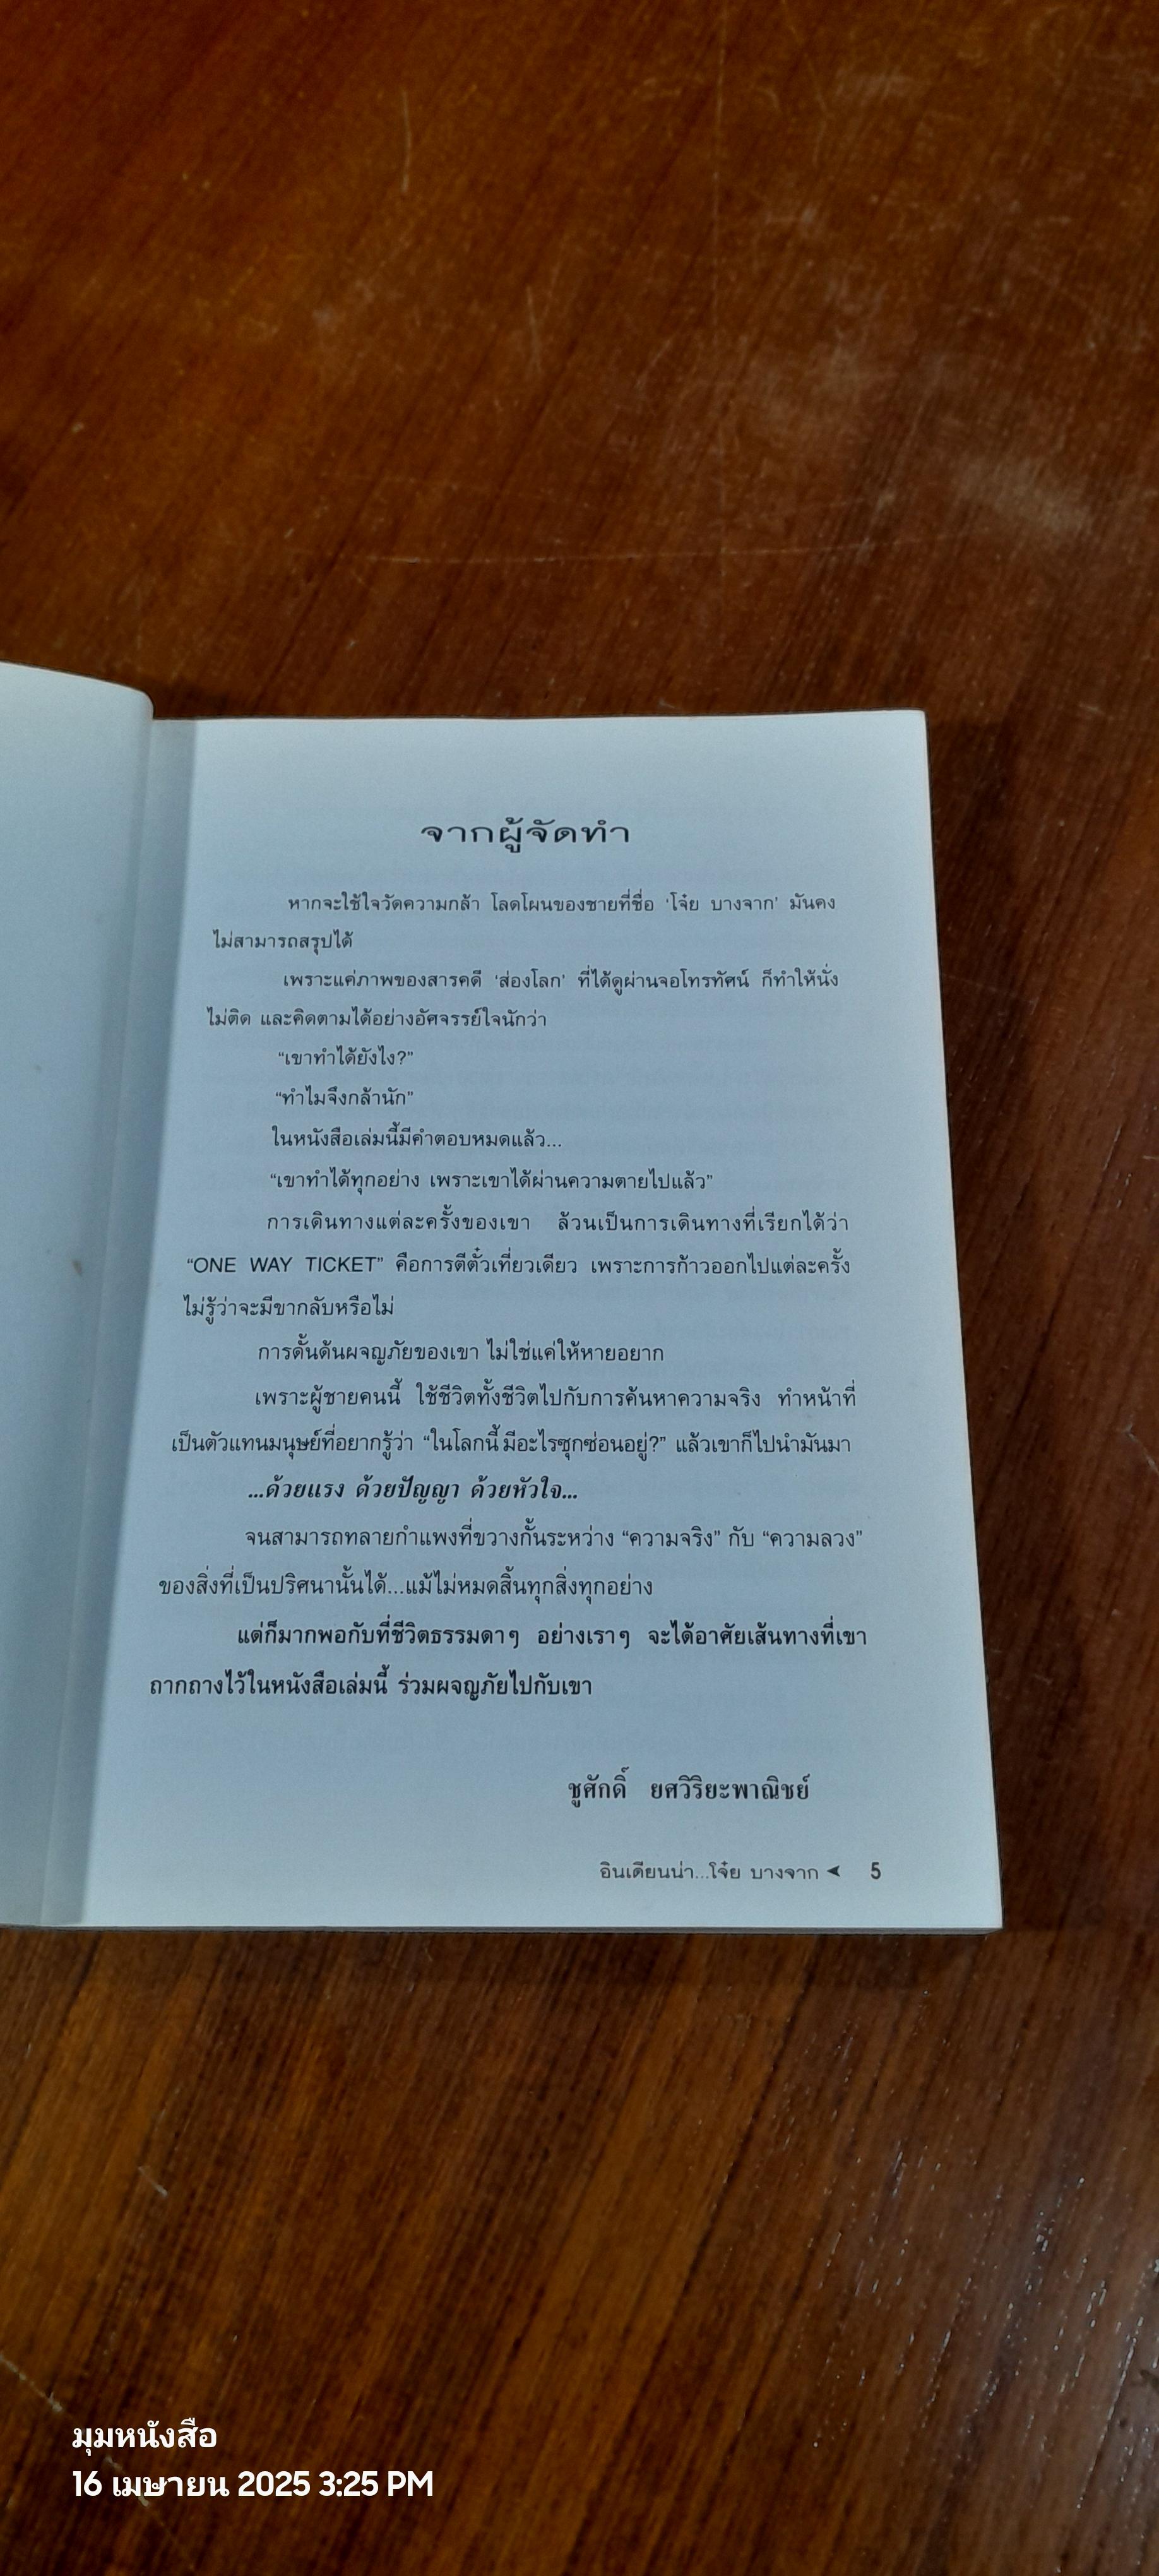 จากผู้จัดทำ
หากจะใช้ใจวัดความกล้า โลดโผนของชายที่ชื่อ ‘โจ๋ย บางจาก’ มันคง
ไม่สามารถสรุปได้
เพราะแค่ภาพของสารคดี ‘ส่องโลก’ ที่ได้ดูผ่านจอโทรทัศน์ ก็ทำให้นั่ง
ไม่ติด และคิดตามได้อย่างอัศจรรย์ใจนักว่า
“เขาทำได้ยังไง?”
“ทำไมจึงกล้านัก”
ในหนังสือเล่มนี้มีคำตอบหมดแล้ว...
“เขาทำได้ทุกอย่าง เพราะเขาได้ผ่านความตายไปแล้ว”
การเดินทางแต่ละครั้งของเขา ล้วนเป็นการเดินทางที่เรียกได้ว่า
“ONE WAY TICKET” คือการตีตั๋วเที่ยวเดียว เพราะการก้าวออกไปแต่ละครั้ง
ไม่รู้ว่าจะมีขากลับหรือไม่
การดั้นด้นผจญภัยของเขา ไม่ใช่แค่ให้หายอยาก
เพราะผู้ชายคนนี้ ใช้ชีวิตทั้งชีวิตไปกับการค้นหาความจริง ทำหน้าที่
เป็นตัวแทนมนุษย์ที่อยากรู้ว่า “ในโลกนี้มีอะไรซุกซ่อนอยู่?” แล้วเขาก็ไปนำมันมา
...ด้วยแรง ด้วยปัญญา ด้วยหัวใจ...
จนสามารถทลายกำแพงที่ขวางกั้นระหว่าง “ความจริง” กับ “ความลวง”
ของสิ่งที่เป็นปริศนานั้นได้...แม้ไม่หมดสิ้นทุกสิ่งทุกอย่าง
แต่ก็มากพอกับที่ชีวิตธรรมดาๆ อย่างเราๆ จะได้อาศัยเส้นทางที่เขา
ถากถางไว้ในหนังสือเล่มนี้ ร่วมผจญภัยไปกับเขา
ชูศักดิ์ ยศวิริยะพาณิชย์
อินเดียนน่า...โจ๋ย บางจาก ➤ 5
มุมหนังสือ
16 เมษายน 2025 3:25 PM